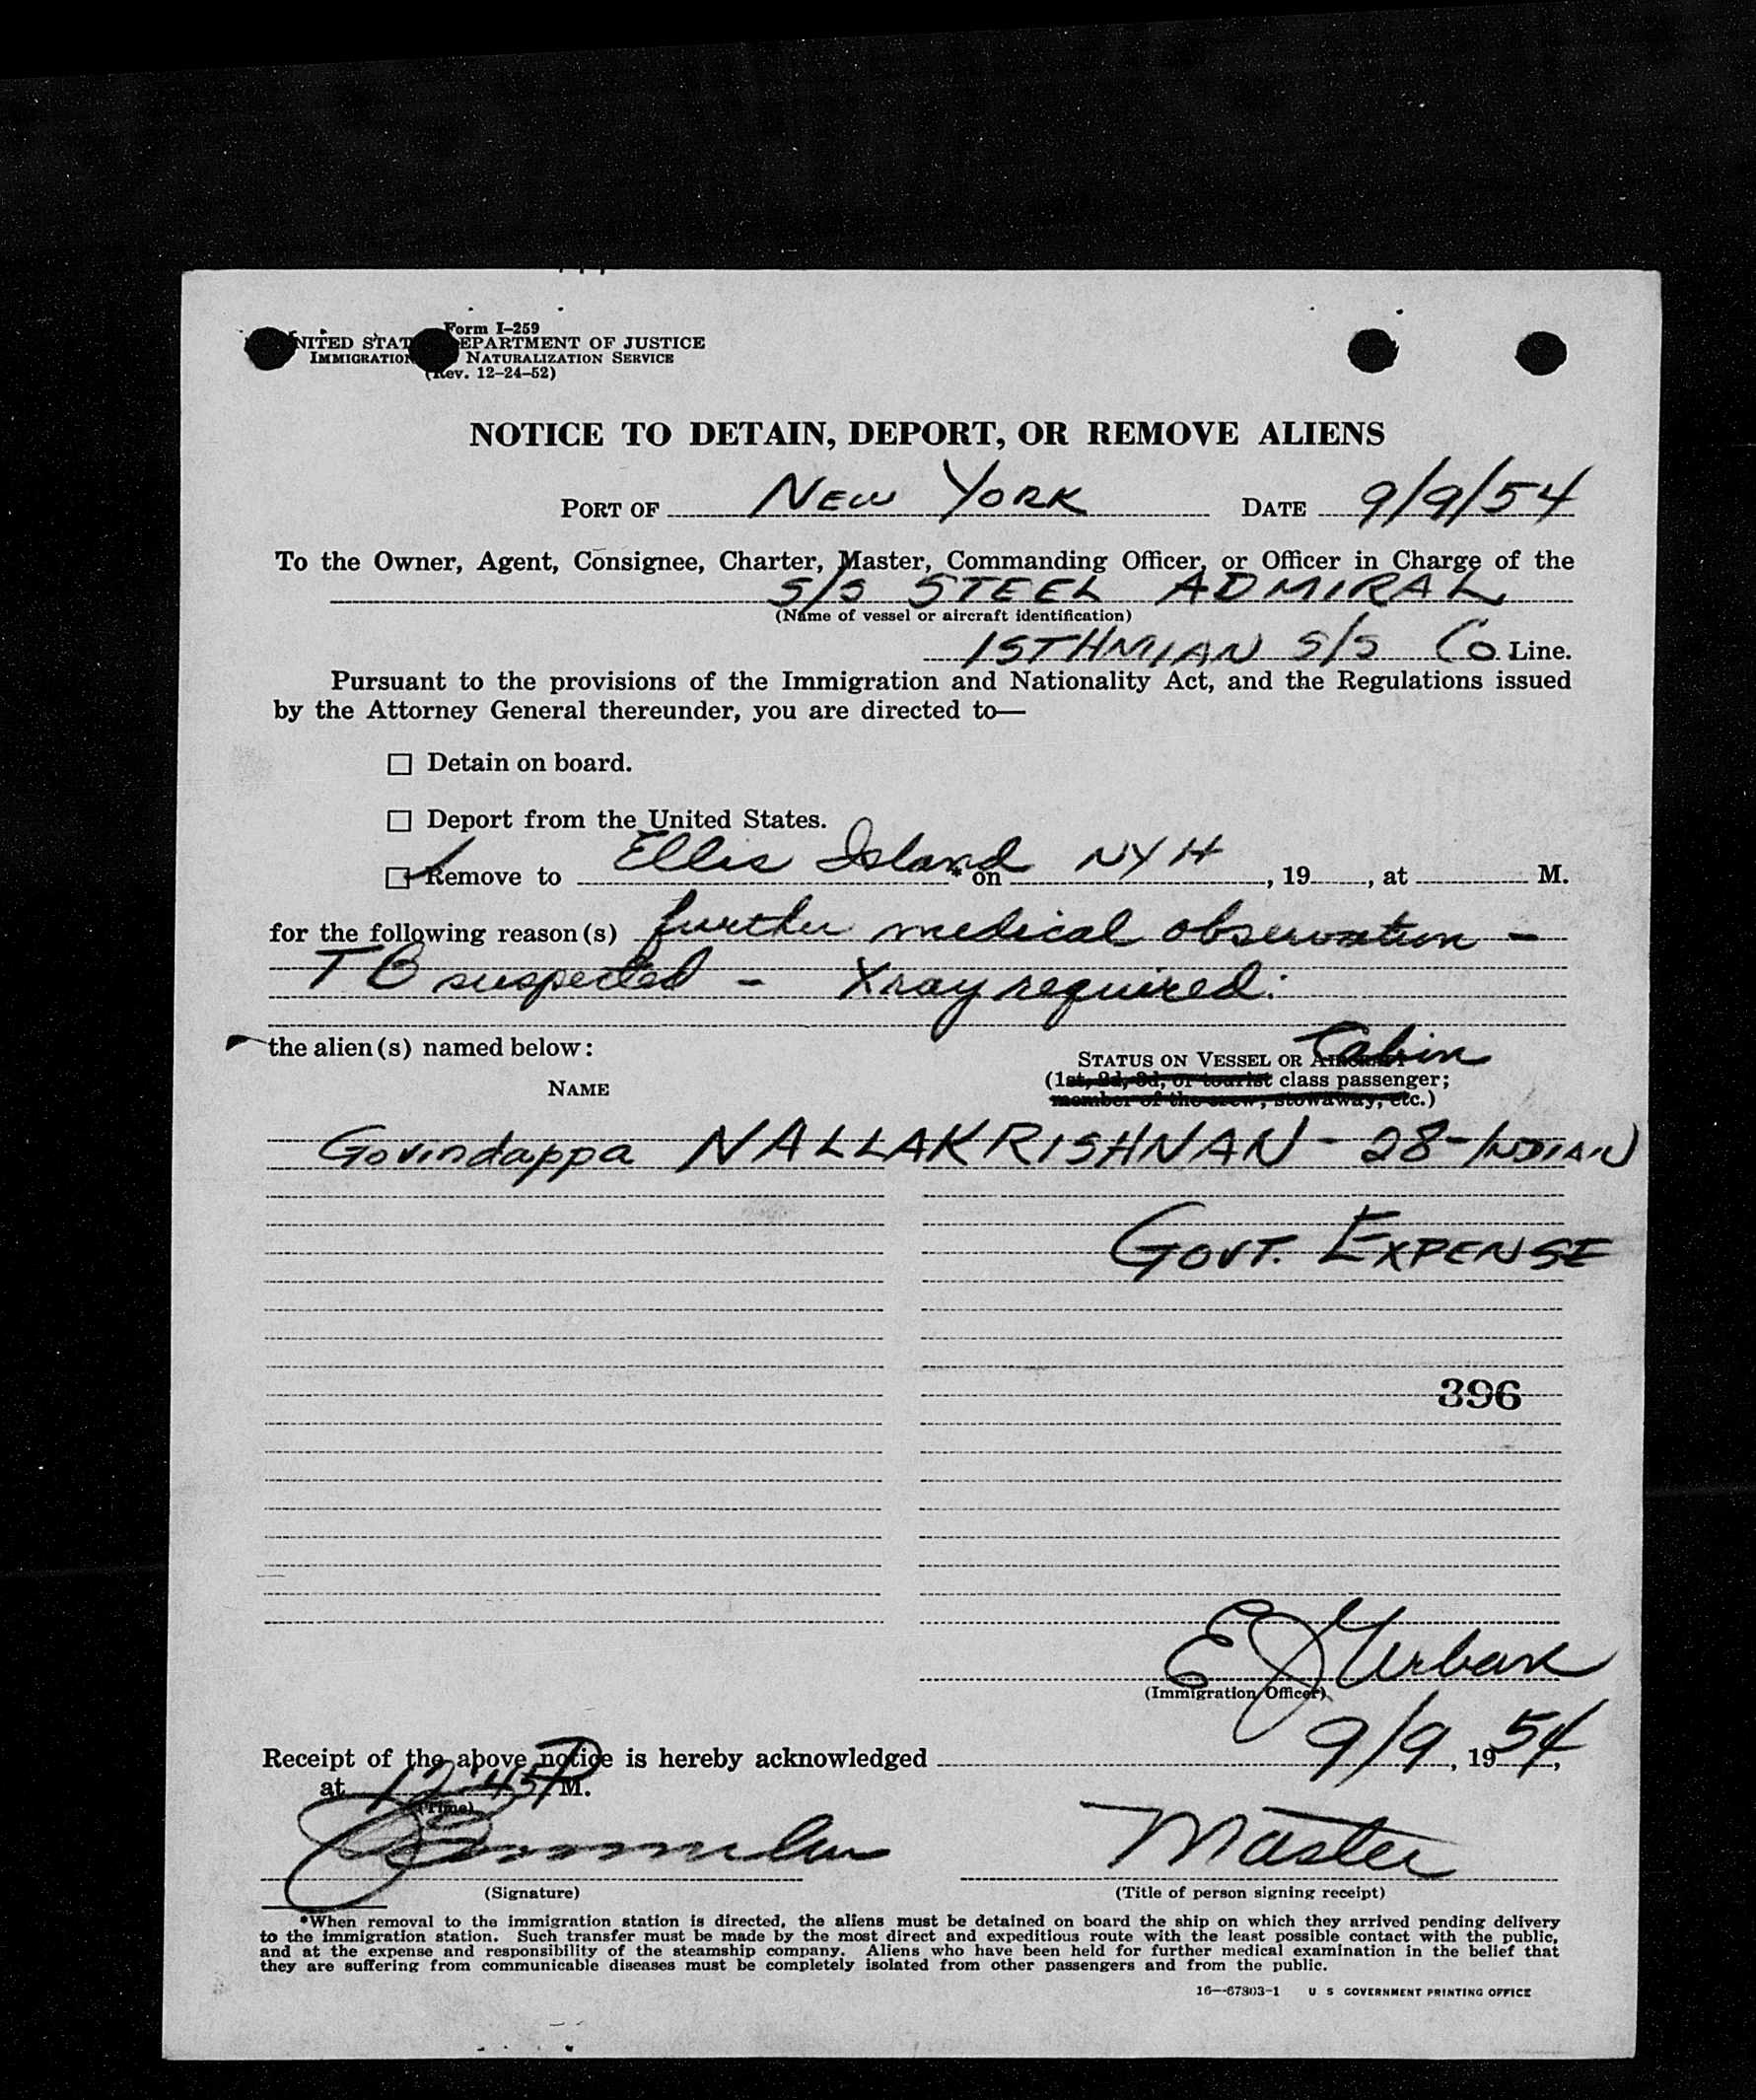 Form I–259
NITED STAT EPARTMENT OF JUSTICE
IMMIGRATION NATURALIZATION SERVICE
(Rev. 12–24–52)
NOTICE TO DETAIN, DEPORT, OR REMOVE ALIENS
PORT OF NEW YORK DATE 9/9/54
To the Owner, Agent, Consignee, Charter, Master, Commanding Officer, or Officer in Charge of the
S/S STEEL ADMIRAL
(Name of vessel or aircraft identification)
ISTHMIAN S/S Co Line.
Pursuant to the provisions of the Immigration and Nationality Act, and the Regulations issued
by the Attorney General thereunder, you are directed to—
☐ Detain on board.
☐ Deport from the United States.
☑ Remove to Ellis Island * on NYH , 19 , at M.
for the following reason(s) further medical observation –
TB suspected – Xray required.
the alien(s) named below:
Cabin
STATUS ON VESSEL OR AIRCRAFT
(1st, 2d, 3d, or tourist class passenger;
NAME
member of the crew, stowaway, etc.)
Govindappa NALLAKRISHNAN – 28 – INDIAN
GOVT. EXPENSE
396
E J Urban
(Immigration Officer)
Receipt of the above notice is hereby acknowledged 9/9, 1954,
at 12:45 P M.
(Time)
Master
(Signature) (Title of person signing receipt)
*When removal to the immigration station is directed, the aliens must be detained on board the ship on which they arrived pending delivery
to the immigration station. Such transfer must be made by the most direct and expeditious route with the least possible contact with the public,
and at the expense and responsibility of the steamship company. Aliens who have been held for further medical examination in the belief that
they are suffering from communicable diseases must be completely isolated from other passengers and from the public.
16—67303-1 U S GOVERNMENT PRINTING OFFICE